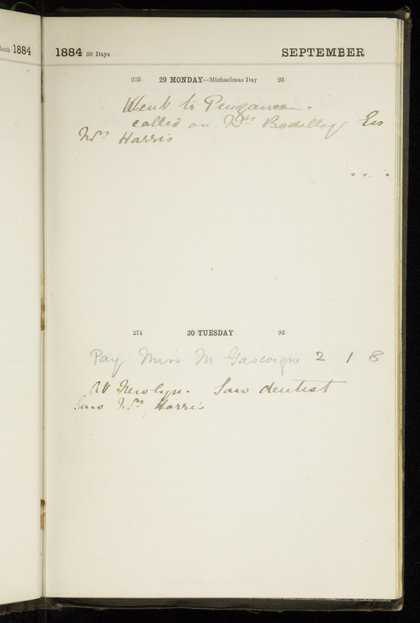 1884
1884 30 Days SEPTEMBER
273 29 MONDAY—Michaelmas Day 93
Went to Penzance.
called on Mrs Bodilly
Mrs Harris
274 30 TUESDAY 92
Pay Miss M Gascoigne 2 1 8
At Saw dentist
Saw Mrs Harris